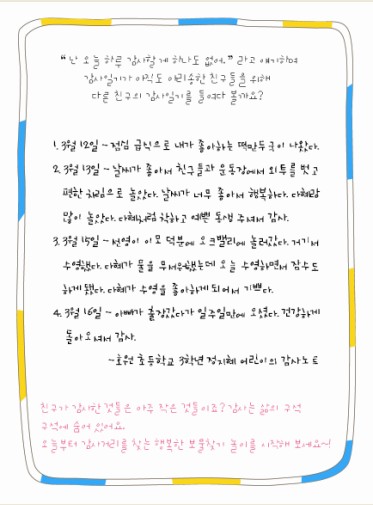 "난 오늘 하루 감사할게 하나도 없어." 라고 얘기하며
감사일기가 아직도 아리송한 친구들을 위해
다른 친구의 감사일기를 들여다 볼까요?
1. 3월 12일 ~ 점심 급식으로 내가 좋아하는 떡만두국이 나왔다.
2. 3월 13일 ~ 날씨가 좋아서 친구들과 운동장에서 외투를 벗고
편한 차림으로 놀았다. 날씨가 너무 좋아서 행복하다. 다혜랑
많이 놀았다. 다혜처럼 착하고 예쁜 동생 주셔서 감사.
3. 3월 15일 ~ 선영이 이모 덕분에 오크밸리에 놀러갔다. 거기서
수영했다. 다혜가 물을 무서워했는데 오늘 수영하면서 잠수도
하게 됐다. 다혜가 수영을 좋아하게 되어서 기쁘다.
4. 3월 16일 ~ 아빠가 출장갔다가 일주일만에 오셨다. 건강하게
돌아오셔서 감사.
~호원 초등학교 3학년 정지혜 어린이의 감사노트
친구가 감사한 것들은 아주 작은 것들이죠? 감사는 삶의 구석
구석에 숨어 있어요.
오늘부터 감사거리를 찾는 행복한 보물찾기 놀이를 시작해 보세요~!